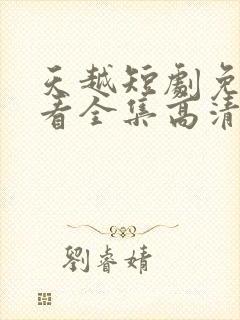 天越短劇免
看全集高清
劉睿婧